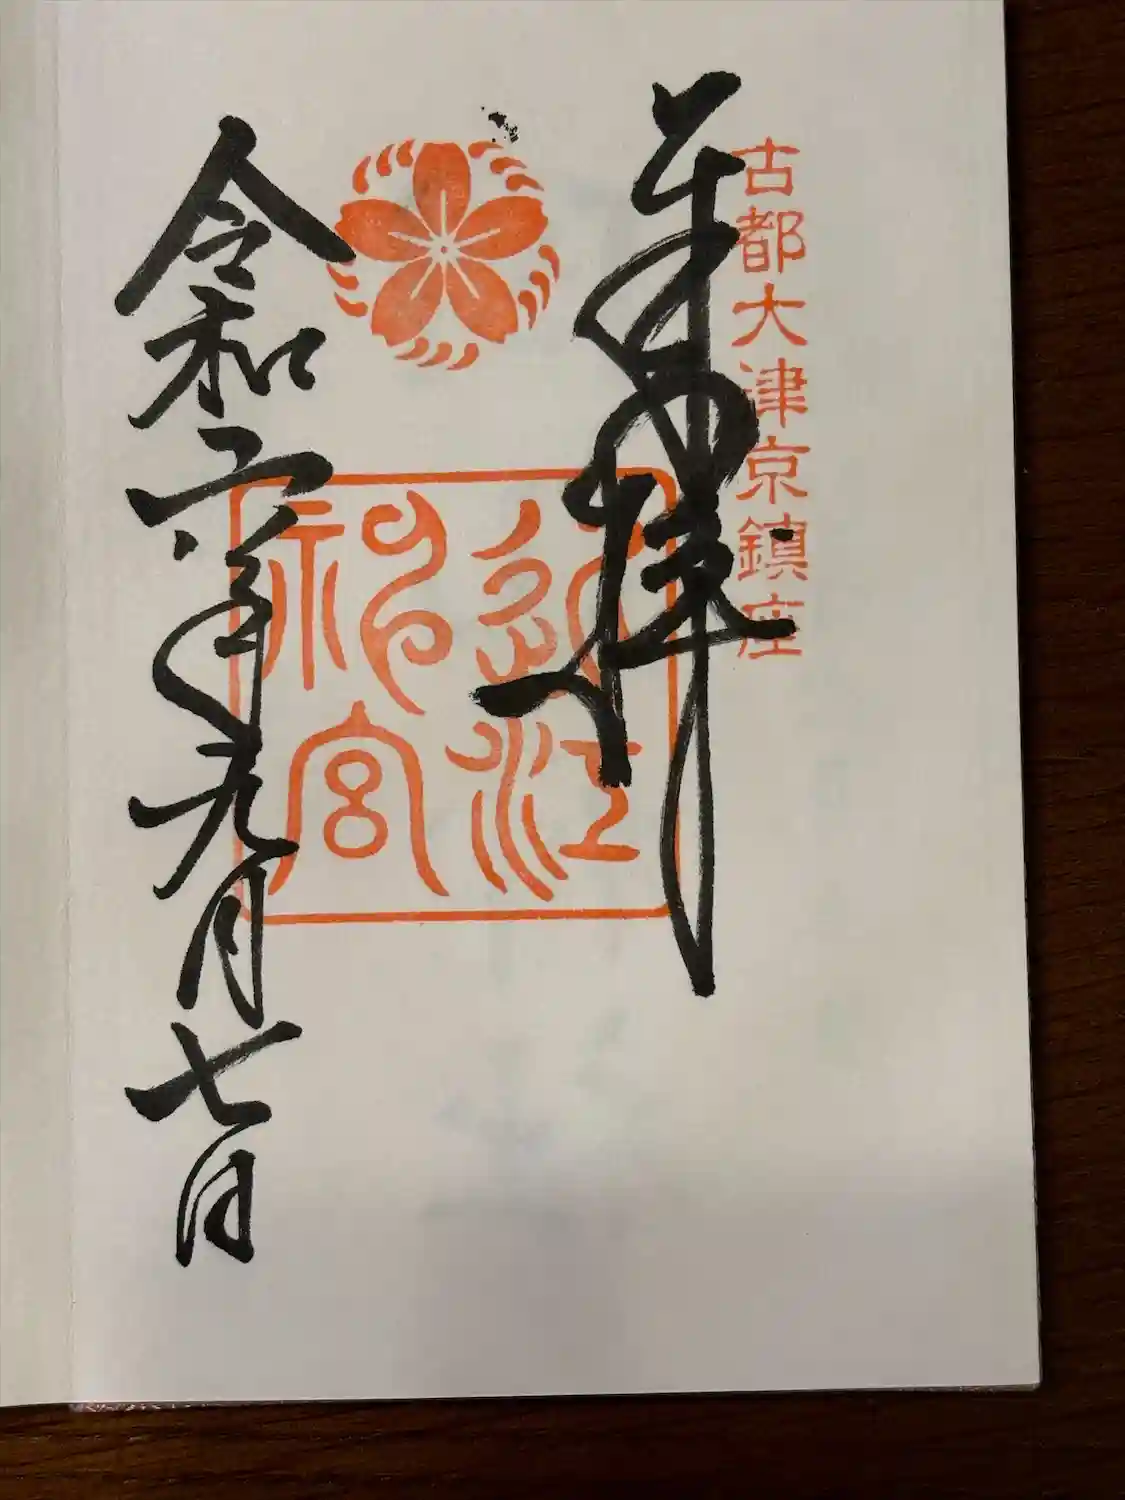 古都大津京鎮座
奉拝
近江
神宮
令和六年九月七日